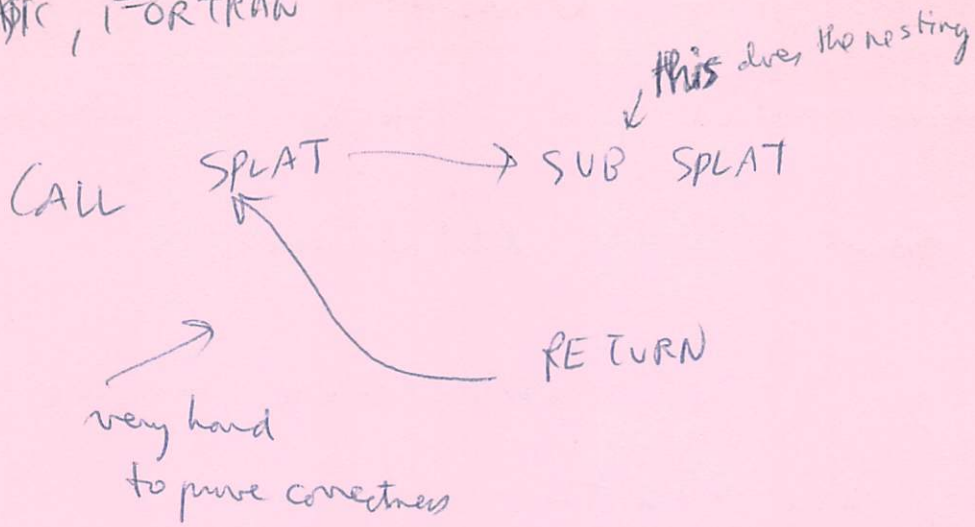 , FORTRAN
this does the nesting
CALL SPLAT → SUB SPLAT
RETURN
very hard
to prove correctness